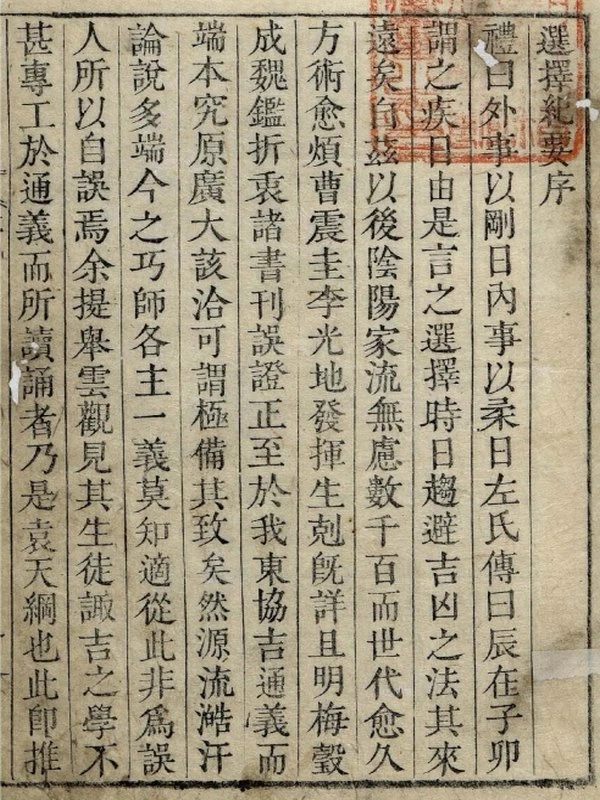 選擇紀要序
禮曰外事以剛日內事以柔日左氏傳曰辰在子卯
謂之疾日由是言之選擇時日趨避吉凶之法其來
遠矣自茲以後陰陽家流無慮數千百而世代愈久
方術愈煩曹震圭李光地發揮生剋旣詳且明梅瑴
成魏鑑折衷諸書刊誤證正至於我東協吉通義而
端本究原廣大該洽可謂極備其致矣然源流澔汗
論說多端今之巧師各主一義莫知適從此非爲誤
人所以自誤焉余提舉雲觀見其生徒諏吉之學不
甚專工於通義而所讀誦者乃是袁天綱也此卽推